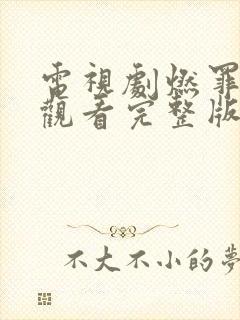 電視劇燃罪
觀看完整版
不大不小的夢